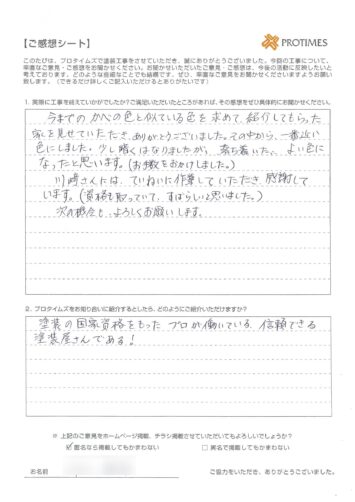 【ご感想シート】
PROTIMES
このたびは、プロタイムズで塗装工事をさせていただき、誠にありがとうございました。今回の工事について、
率直なご意見・ご感想をお聞かせください。お聞かせいただいたご意見・ご感想は、今後の活動に反映したいと
考えております。どのような些細なことでも結構です。ぜひ、率直なご意見をお聞かせくださいますようお願い
致します。（できるだけ詳しくご記入いただけるとありがたいです）
1. 実際に工事を終えていかがでしたか？ご満足いただいたところがあれば、その感想をぜひ具体的にお聞かせください。
今までのかべの色と似ている色を求めて、紹介してもらった
家を見せていただき、ありがとうございました。その中から、一番近い
色にしました。少し暗くはなりましたが、落ち着いた、よい色に
なったと思います。(お手数をおかけしました。)
川崎さんには、ていねいに作業していただき、感謝して
います。(資格も取っていて、すばらしいと思いました。)
次の機会も、よろしくお願いします。
2. プロタイムズをお知り合いに紹介するとしたら、どのようにご紹介いただけますか？
塗装の国家資格をもった プロが働いている 信頼できる
塗装屋さんである！
※ 上記のご意見をホームページ掲載、チラシ掲載させていただいてもよろしいでしょうか？
☑ 匿名なら掲載してもかまわない □ 実名で掲載してもかまわない
お名前
ご協力をいただき、ありがとうございました。